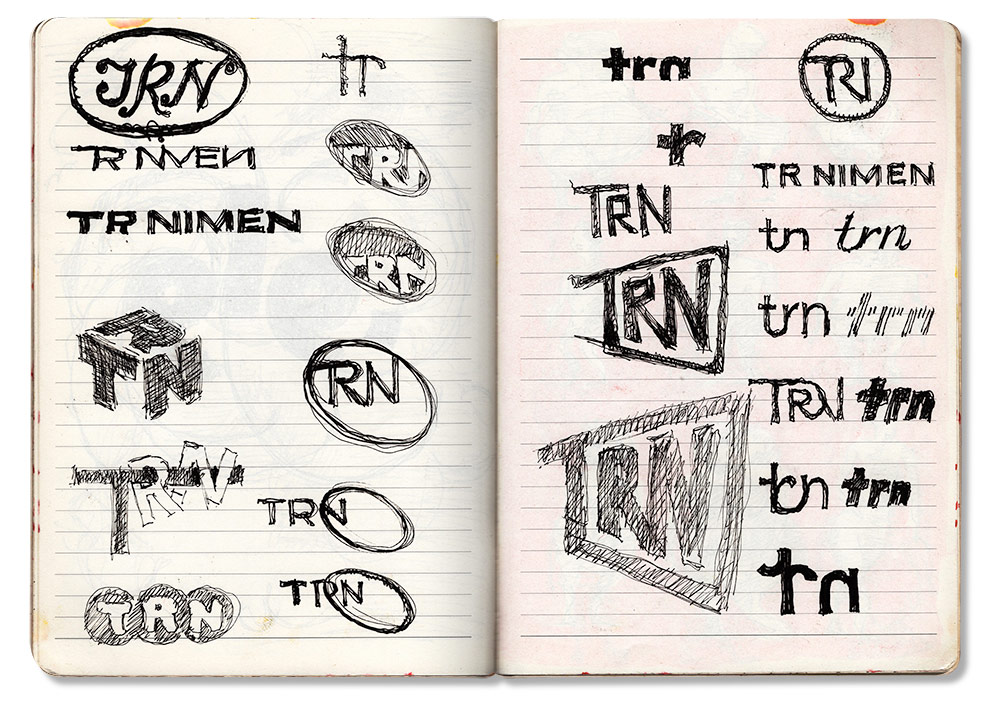 TRN
TR NIMEN
R
TN
TRN
TRN
tr
TRN
TRN
TRN
TRN
TRN
trn
tr
TRN
TRN
TRN
TRN
TR NIMEN
trn trn
trn trn
TRN trn
trn trn
trn